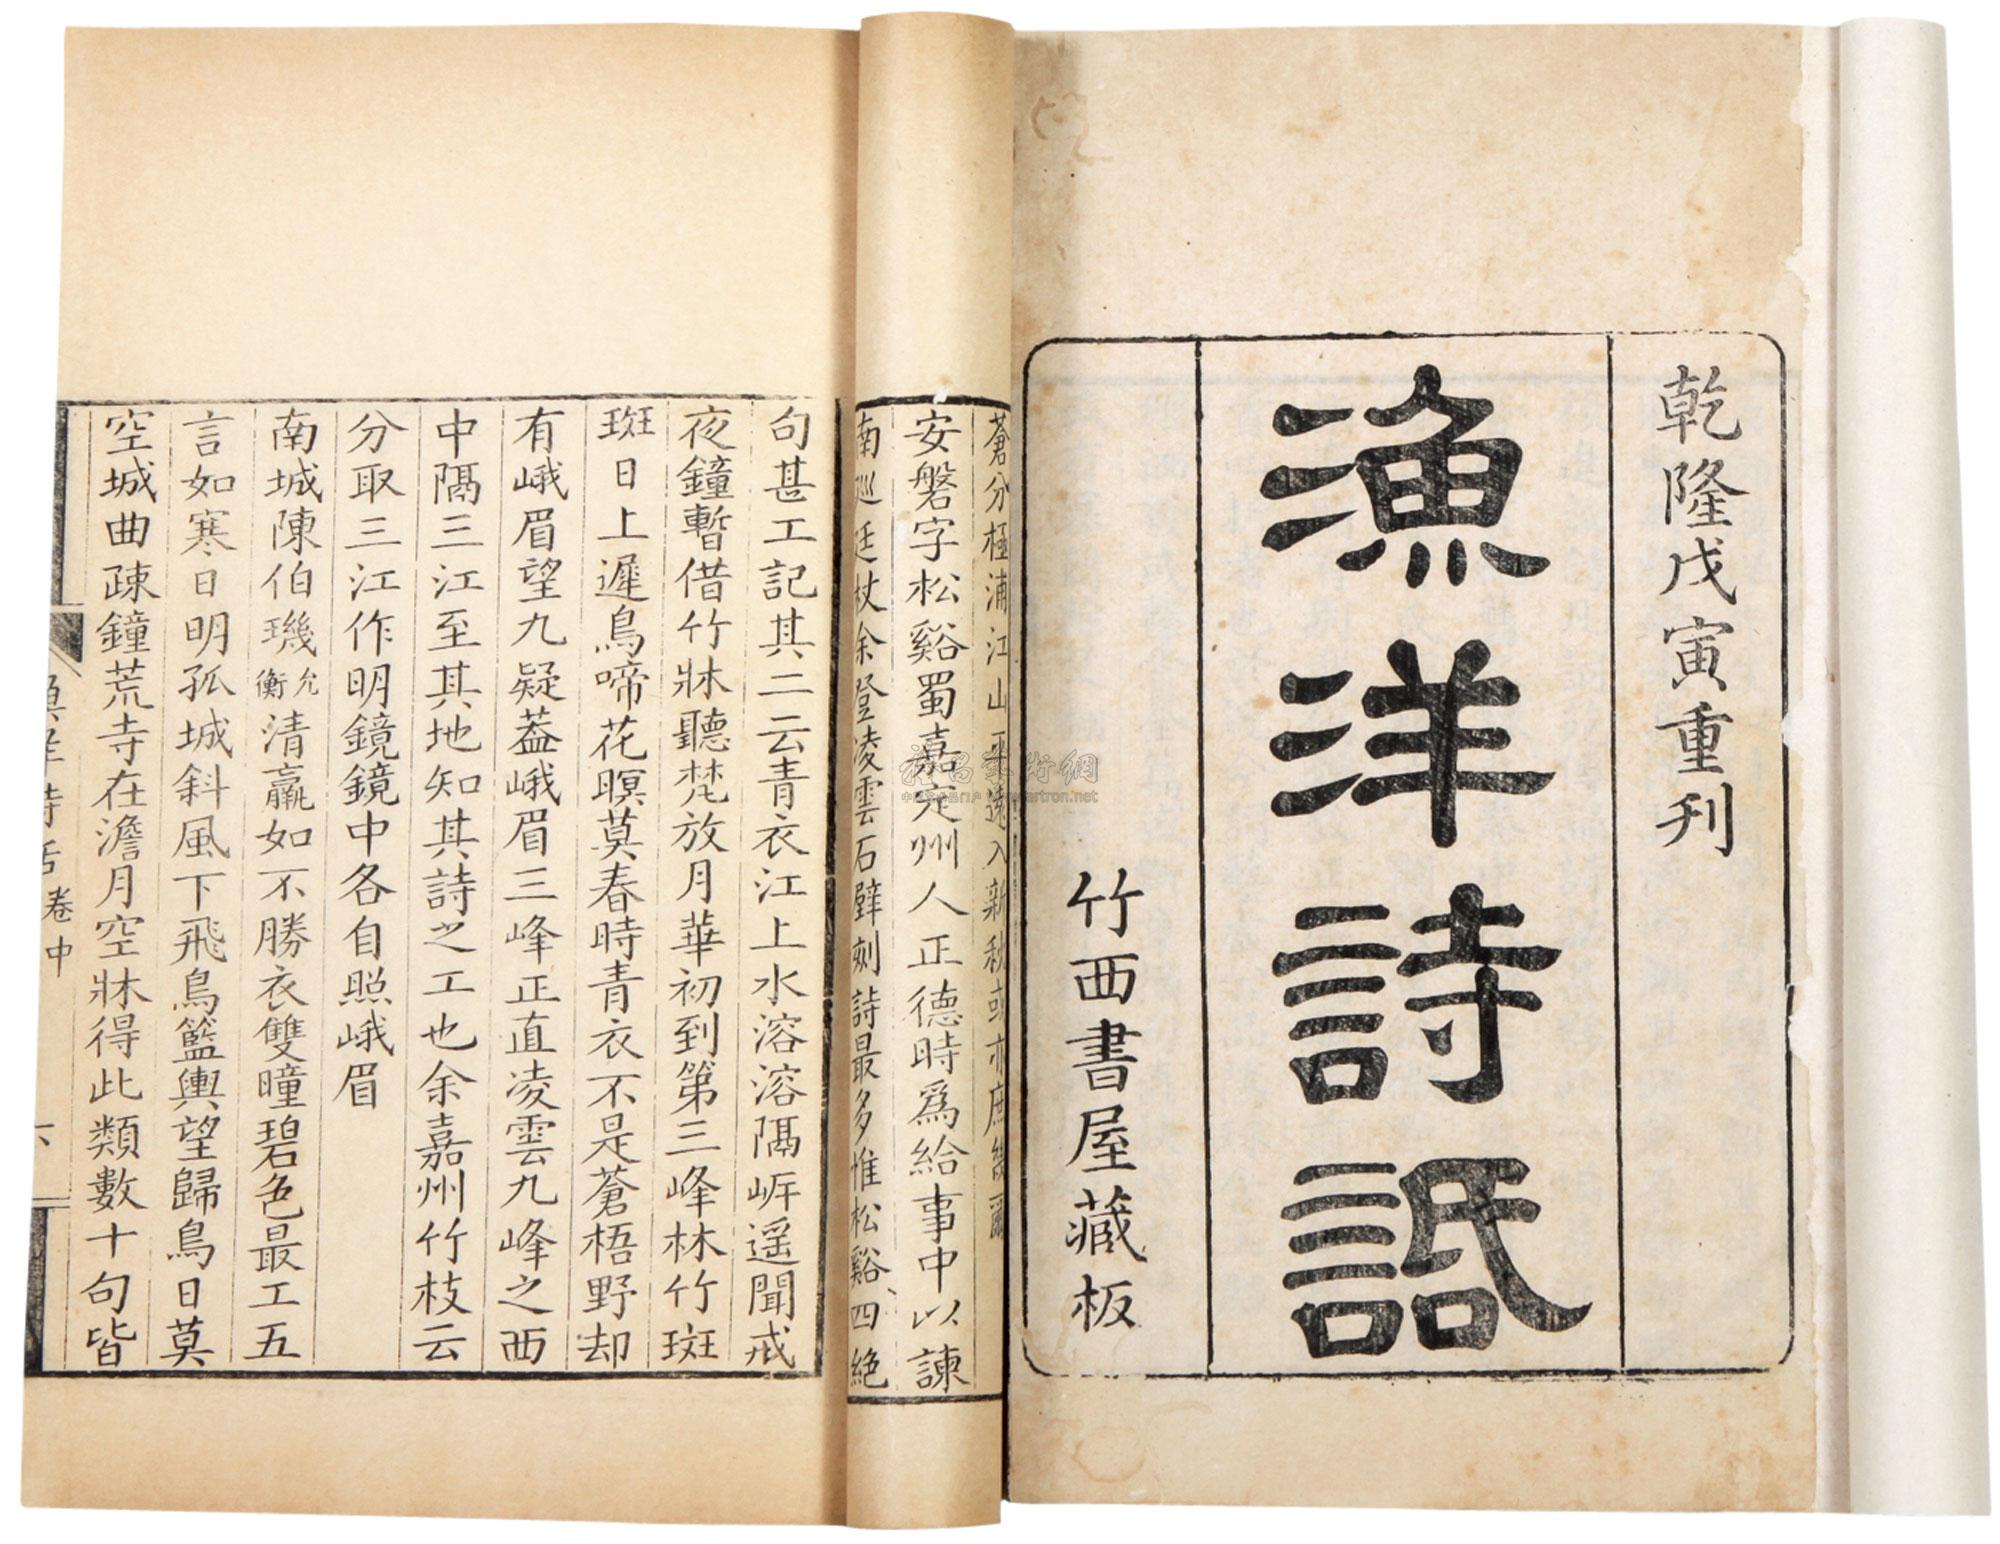 乾隆戊寅重刊
漁洋詩話
竹西書屋藏板
蒼分極浦江山平遠入新秋或亦庶幾爾
安磐字松谿蜀嘉定州人正德時爲給事中以諫
南巡廷杖余登凌雲石壁刻詩最多惟松谿四絶
句甚工記其二云青衣江上水溶溶隔岸遥聞戒
夜鐘暫借竹牀聽梵放月華初到第三峰林竹斑
斑日上遲鳥啼花暝莫春時青衣不是蒼梧野却
有峨眉望九疑葢峨眉三峰正直凌雲九峰之西
中隔三江至其地知其詩之工也余嘉州竹枝云
分取三江作明鏡鏡中各自照峨眉
南城陳伯璣允衡清羸如不勝衣雙瞳碧色最工五
言如寒日明孤城斜風下飛鳥籃輿望歸鳥日莫
空城曲疎鐘荒寺在澹月空牀得此類數十句皆
漁洋詩話 卷中 六